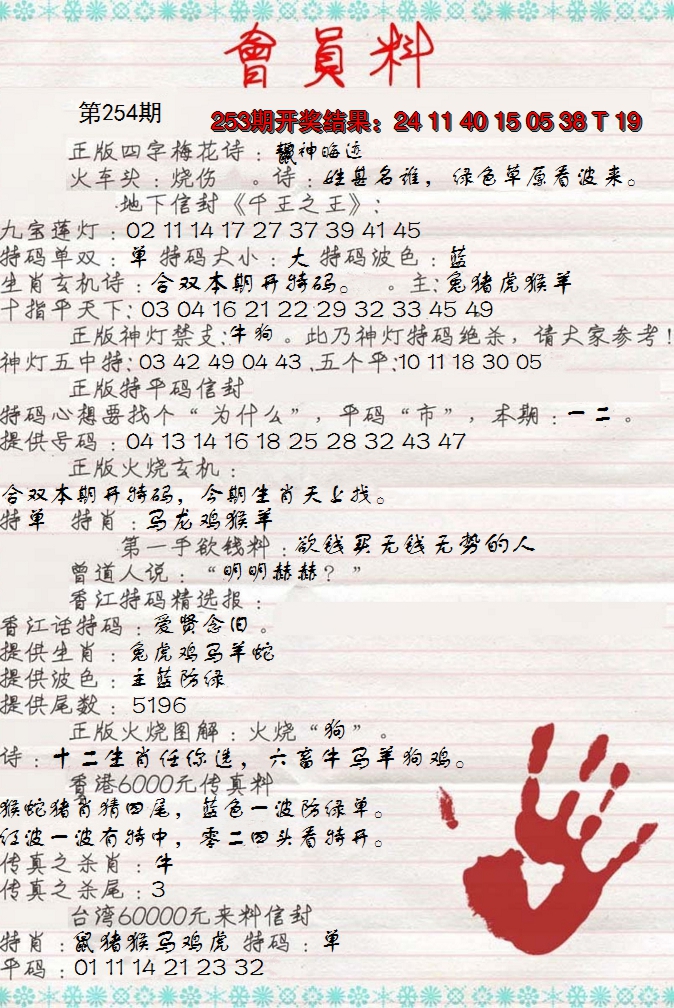 會員料
第254期
253期开奖结果：24 11 40 15 05 38 T 19
正版四字梅花诗：神晦迹
火车头：烧伤 。诗：姓甚名谁，绿色草原看波来。
地下信封《千王之王》：
九宝莲灯：02 11 14 17 27 37 39 41 45
特码单双：单 特码大小：大 特码波色：蓝
生肖玄机诗：合双本期开特码。 。主：兔猪虎猴羊
十指平天下：03 04 16 21 22 29 32 33 45 49
正版神灯禁支：牛狗。此乃神灯特码绝杀，请大家参考！
神灯五中特：03 42 49 04 43 .五个平：10 11 18 30 05
正版特平码信封
特码心想要找个“为什么”，平码“市”，本期：一二。
提供号码：04 13 14 16 18 25 28 32 43 47
正版火烧玄机：
合双本期开特码，今期生肖天上找。
特单 特肖：马龙鸡猴羊
第一手欲钱料：欲钱买无钱无势的人
曾道人说：“明明赫赫？”
香江特码精选报：
香江话特码：爱贤念旧。
提供生肖：兔虎鸡马羊蛇
提供波色：主蓝防绿
提供尾数：5196
正版火烧图解：火烧“狗”。
诗：十二生肖任你选，六畜牛马羊狗鸡。
香港6000元传真料
猴蛇猪肖猜四尾，蓝色一波防绿单。
红波一波有特中，零二四头看特开。
传真之杀肖：牛
传真之杀尾：3
台湾60000元来料信封
特肖：鼠猪猴马鸡虎 特码：单
平码：01 11 14 21 23 32